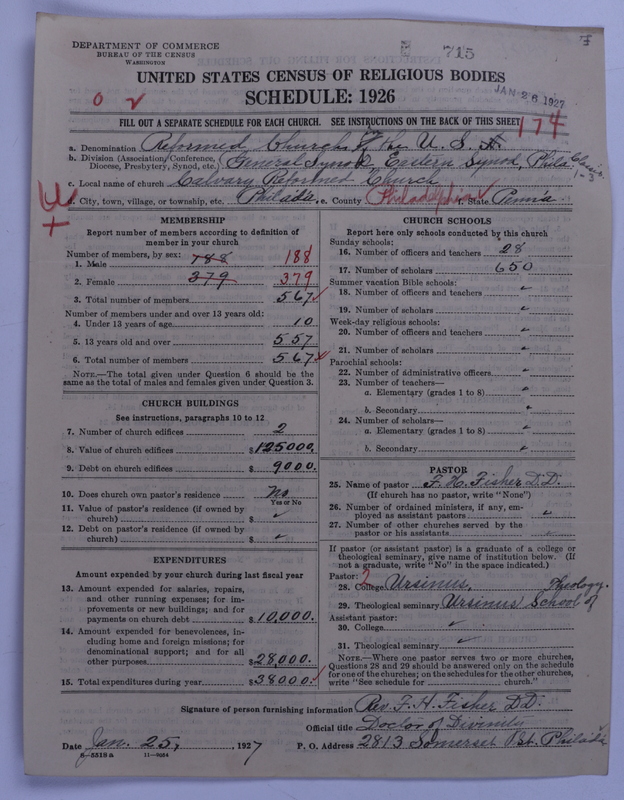 DEPARTMENT OF COMMERCE
BUREAU OF THE CENSUS
WASHINGTON
715
UNITED STATES CENSUS OF RELIGIOUS BODIES
JAN 26 1927
SCHEDULE: 1926
FILL OUT A SEPARATE SCHEDULE FOR EACH CHURCH. SEE INSTRUCTIONS ON THE BACK OF THIS SHEET
174
a. Denomination Reformed Church in the U. S. A
b. Division (Association, Conference, Diocese, Presbytery, Synod, etc.) General Synod Eastern Synod, Phila. Classis
1-3
c. Local name of church Calvary Reformed Church
d. City, town, village, or township, etc. Philada. e. County Philadelphia f. State Penn'a
MEMBERSHIP
Report number of members according to definition of member in your church
Number of members, by sex:
1. Male 188 188
2. Female 379 379
3. Total number of members 567
Number of members under and over 13 years old:
4. Under 13 years of age 10
5. 13 years old and over 557
6. Total number of members 567
NOTE.—The total given under Question 6 should be the same as the total of males and females given under Question 3.
CHURCH BUILDINGS
See instructions, paragraphs 10 to 12
7. Number of church edifices 2
8. Value of church edifices $125000.
9. Debt on church edifices $9000.
10. Does church own pastor's residence No
Yes or No
11. Value of pastor's residence (if owned by church) $
12. Debt on pastor's residence (if owned by church) $
EXPENDITURES
Amount expended by your church during last fiscal year
13. Amount expended for salaries, repairs, and other running expenses; for improvements or new buildings; and for payments on church debt $10,000.
14. Amount expended for benevolences, including home and foreign missions; for denominational support; and for all other purposes $28,000.
15. Total expenditures during year $38000.
CHURCH SCHOOLS
Report here only schools conducted by this church
Sunday schools:
16. Number of officers and teachers 28
17. Number of scholars 650
Summer vacation Bible schools:
18. Number of officers and teachers
19. Number of scholars
Week-day religious schools:
20. Number of officers and teachers
21. Number of scholars
Parochial schools:
22. Number of administrative officers
23. Number of teachers—
a. Elementary (grades 1 to 8)
b. Secondary
24. Number of scholars—
a. Elementary (grades 1 to 8)
b. Secondary
PASTOR
25. Name of pastor F. H. Fisher D.D.
(If church has no pastor, write "None")
26. Number of ordained ministers, if any, employed as assistant pastors
27. Number of other churches served by the pastor or his assistants
If pastor (or assistant pastor) is a graduate of a college or theological seminary, give name of institution below. (If not a graduate, write "No" in the space indicated.)
Pastor: 2
28. College Ursinus, Theology.
29. Theological seminary Ursinus School of
Assistant pastor:
30. College
31. Theological seminary
NOTE.—Where one pastor serves two or more churches, Questions 28 and 29 should be answered only on the schedule for one of the churches; on the schedules for the other churches, write "See schedule for church."
Signature of person furnishing information Rev. F. H. Fisher D.D.
Official title Doctor of Divinity
Date Jan. 25, , 1927 P. O. Address 2813 Somerset St. Philada
8—5518a 11—9084